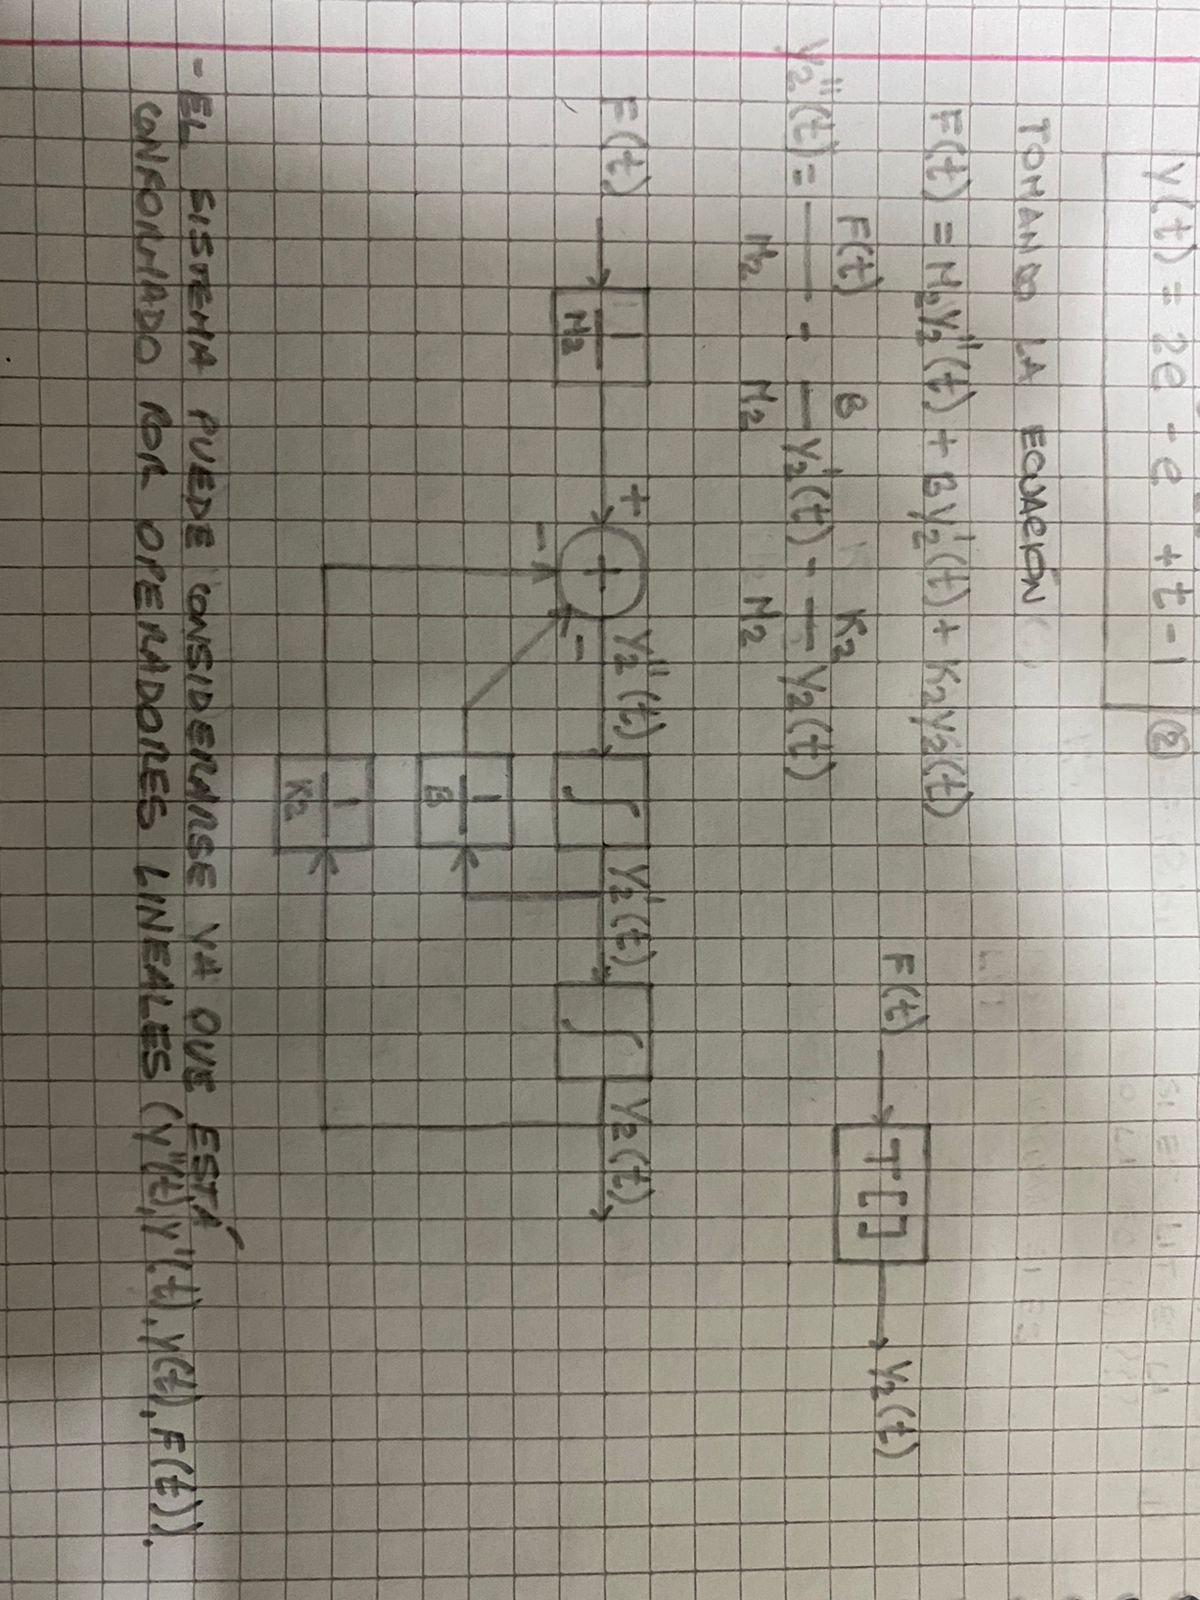 y(t) = 2e - e + t - 1 ②
TOMANDO LA ECUACIÓN
F(t) = M₂y₂''(t) + By₂'(t) + K₂y₂(t)
F(t) → T[ ] → y₂(t)
y₂''(t) = F(t)/M₂ - B/M₂ y₂'(t) - K₂/M₂ y₂(t)
F(t) 1/M₂ + + y₂''(t) ∫ y₂'(t) ∫ y₂(t)
- -
1/B
1/K₂
- EL SISTEMA PUEDE CONSIDERARSE YA QUE ESTÁ
CONFORMADO POR OPERADORES LINEALES (y''(t), y'(t), y(t), F(t)).